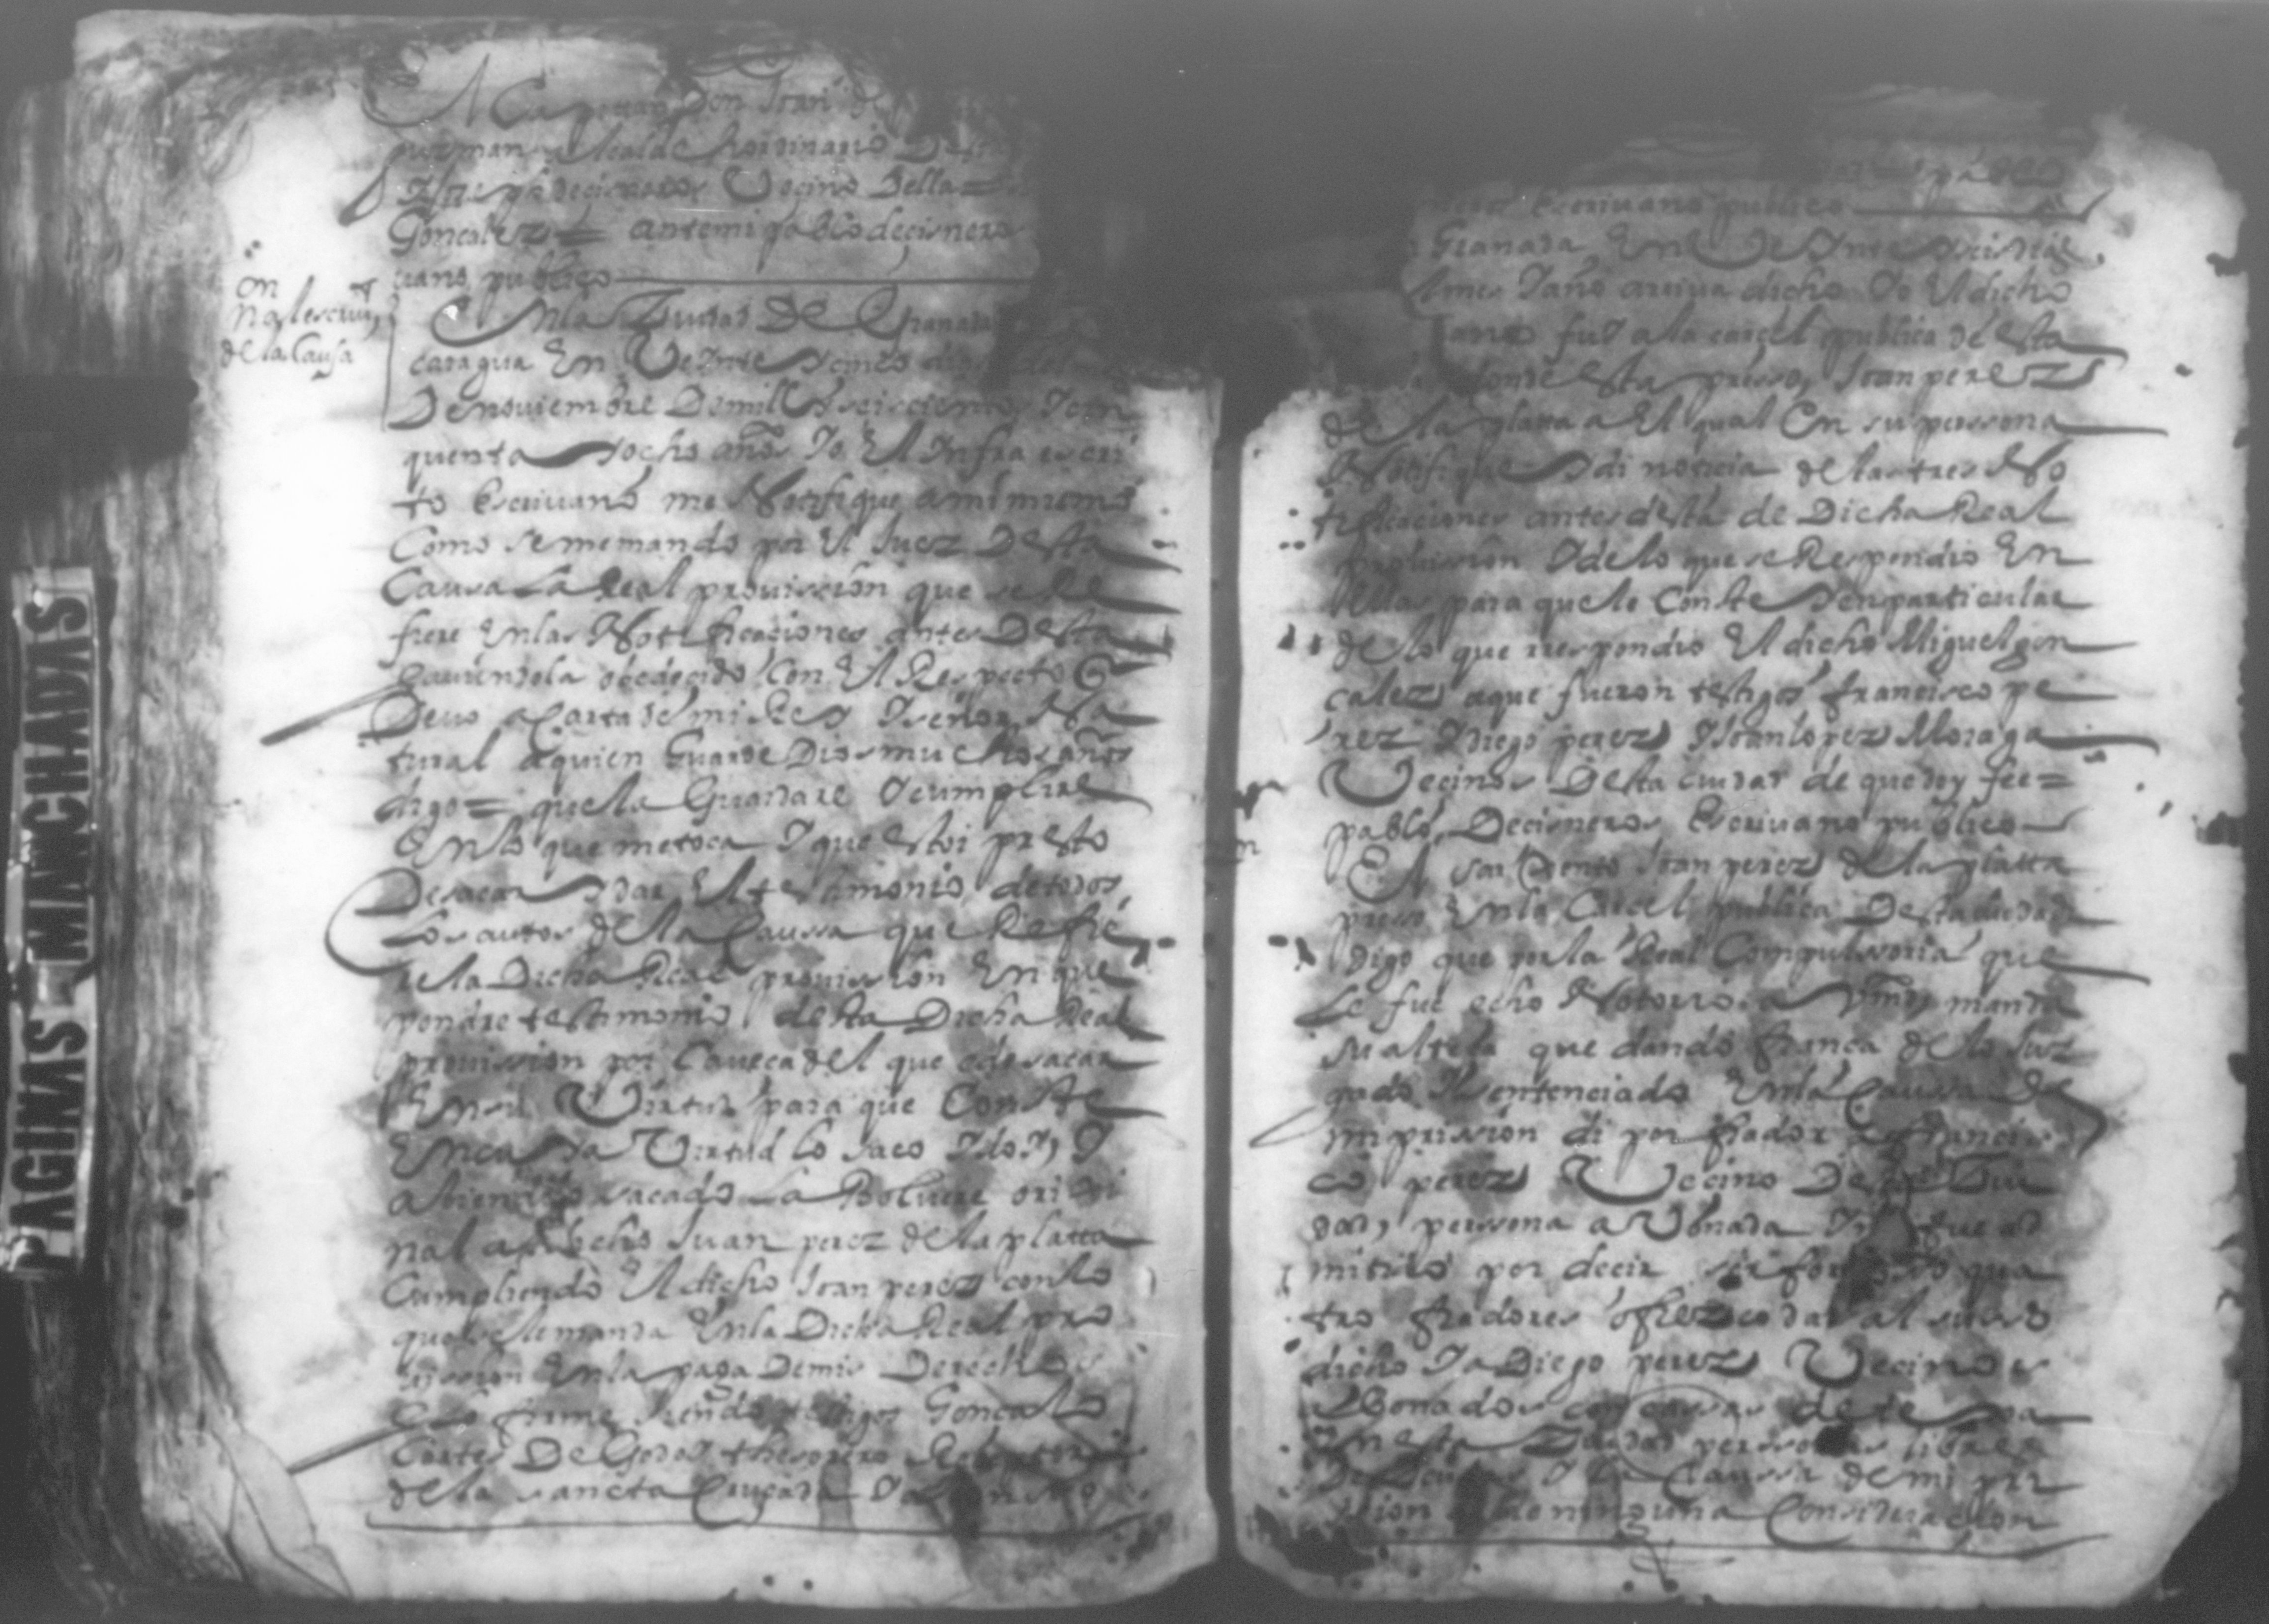 Capittan Don Joan de
guzman Alcalde hordinario Desta
Vecino Della =
Goncalez = antemi pablo decisneros
uano publico
on
Nos lescriu
de la Causa
En la Ziudad De Granada
caragua En Veinte y
De noviembre De mill y seiscientos y cin
quenta y ocho años Yo El Infra escri
to escriuano me Notifique a mi mismo
Como se me mando por El Juez Desta
Causa La Real prouission que se Re
fiere En las Notificaciones antes Desta
hauiendola obedecido Con El Respecto
Deuo a Carta de mi Rey y señor Na
tural a quien Guarde Dios muchos años
digo = que la Guardare y cumplire
En lo que me toca y que estoi presto
De sacar y dar El testimonio de todos
Los autos de la Caussa que Refie
re la Dicha Real prouission En que
pondre testimonio desta Dicha Real
prouission por Caueca del que e de sacar
En su Virtud para que Conste
En cuya Virtud lo saco y doy, y
abiendo sacado La Boluere orixi
nal a dicho Juan perez de la platta
Cumpliendo El dicho Joan perez con lo
que se le manda En la Dicha Real pro
uission En la paga De mis Derechos
y lo firme siendo testigos Goncalo
Cortes De Godoy thesorero
de la sancta Crusada
escriuano publico
Granada, En Veinte y seis dias
mes y año arriua dicho Yo El dicho
fui a la carcel publica desta
donde esta presso, Joan perez
de la platta a El qual En su perssona
Notifique y di noticia de las tres No
tificaciones antes desta de Dicha Real
prouission y de lo que se Respondio En
Ellas para que le Conste y en particular
de lo que rrespondio El dicho Miguel gon
calez a que fueron testigos francisco pe
rez y Diego perez y Joan lopez Moraga
Vecinos Desta ciudad de que doy fee =
pablo Decisneros Escriuano publico
El sarxento Joan perez de la platta
presso En la Carcel publica Desta ciudad
Digo que por la Real Compulsoria que
Le fue echo Notorio a Vmd, manda
su alteza que dando fianca de lo Juz
gado y sentenciado En la Caussa de
mi prission di por fiador a francis
co perez Vecino De esta Ziu
dad, perssona a Vonada y no fue ad
mitido por decir ser forcoso qua
tro fiadores ofrezco dar al susso
dicho y a Diego perez Vecinos
Abonados con cassas de
En esta Ziudad perssonas libres
De Deudas y La Caussa de mi pri
ssion de ninguna Consideracion
PAGINAS MANCHADAS